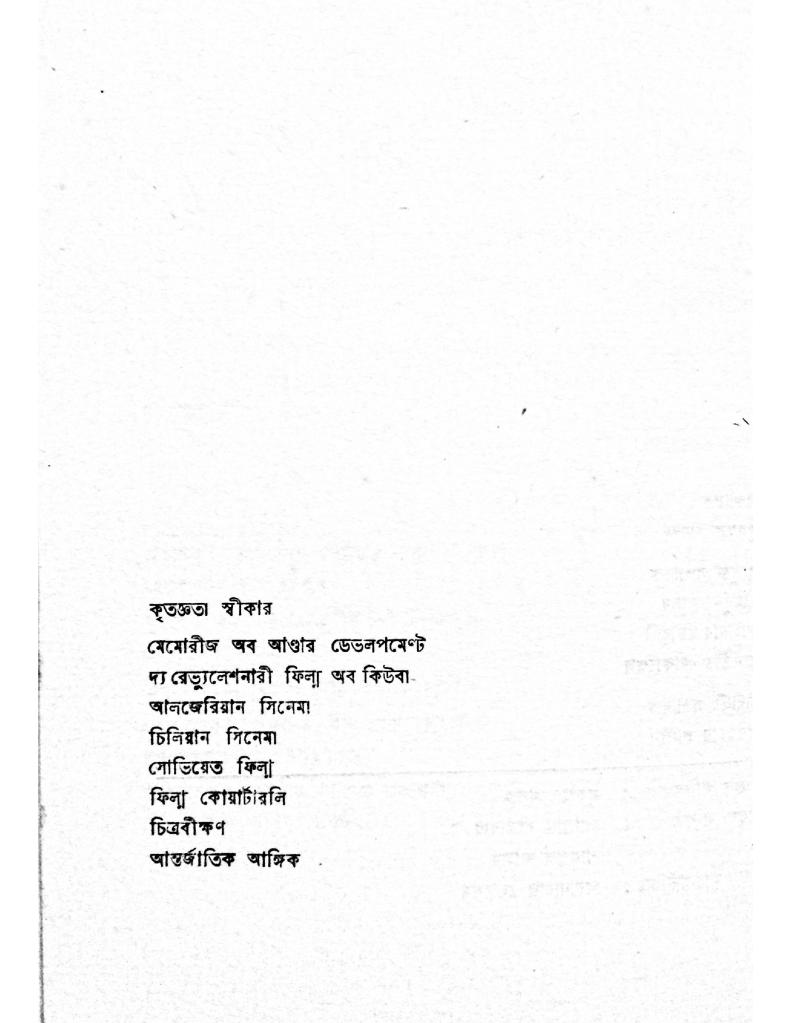 কৃতজ্ঞতা স্বীকার
মেমোরীজ অব আণ্ডার ডেভলপমেণ্ট
দ্য রেভ্যুলেশনারী ফিল্ম অব কিউবা
আলজেরিয়ান সিনেমা
চিলিয়ান সিনেমা
সোভিয়েত ফিল্ম
ফিল্ম কোয়ার্টারলি
চিত্রবীক্ষণ
আন্তর্জাতিক আঙ্গিক